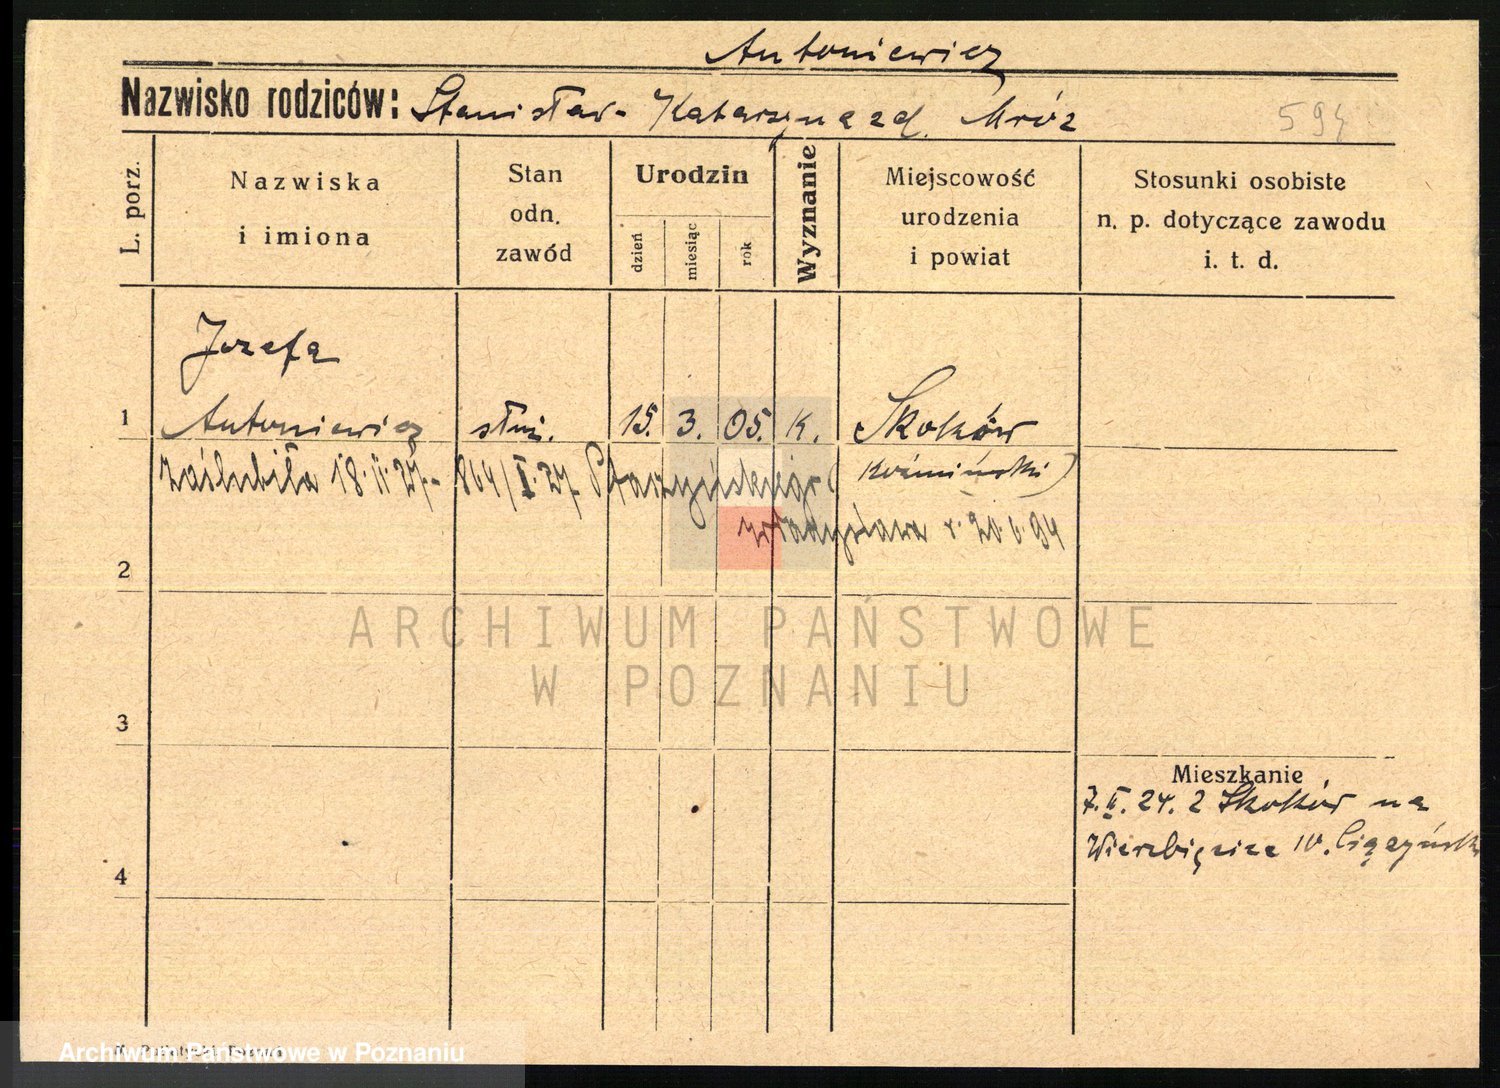 Antoniewicz
Nazwisko rodziców: Stanisław - Katarzyna zd. Mróz
594
L. porz.
Nazwiska
i imiona
Stan
odn.
zawód
Urodzin
dzień
miesiąc
rok
Wyznanie
Miejscowość
urodzenia
i powiat
Stosunki osobiste
n. p. dotyczące zawodu
i. t. d.
Józefa
1 Antoniewicz służ. 15. 3. 05. k. Skoków
(koźmiński)
zaślubiła 18.II.27 - 864/I.27
Władysława r. 20.6.94
2
ARCHIWUM PAŃSTWOWE
W POZNANIU
3
Mieszkanie
7.II.24. z Skoków na
Wierzbięcice 10.
4
Archiwum Państwowe w Poznaniu